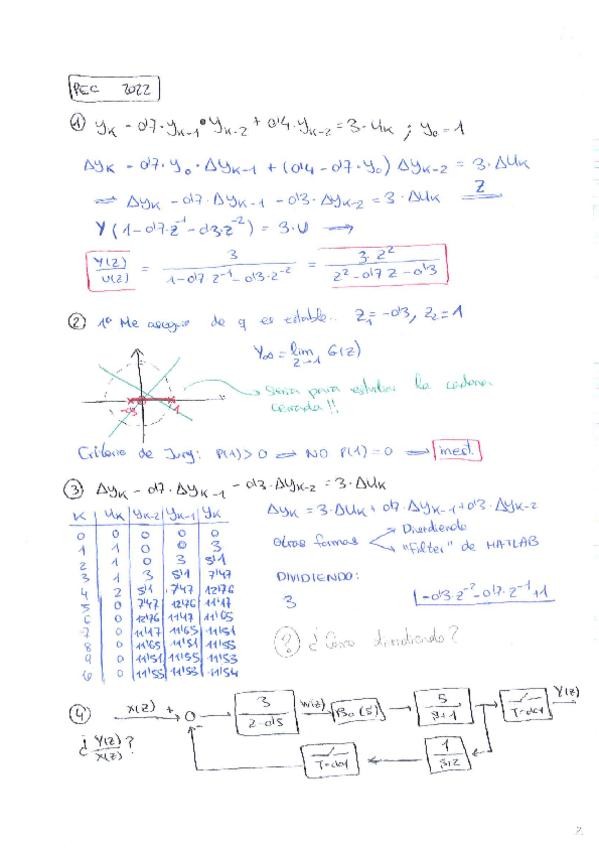 PEC 2022
① yk - 0'7·yk-1·yk-2 + 0'4·yk-2 = 3·uk ; y₀ = 1
Δyk - 0'7·y₀·Δyk-1 + (0'4 - 0'7·y₀) Δyk-2 = 3·Δuk
⇒ Δyk - 0'7·Δyk-1 - 0'3·Δyk-2 = 3·Δuk Z
Y (1 - 0'7·z⁻¹ - 0'3·z⁻²) = 3·U →
Y(z)/U(z) = 3/(1 - 0'7·z⁻¹ - 0'3·z⁻²) = 3·z²/(z² - 0'7z - 0'3)
② 1º Me aseguro de q es estable.. Z₁ = -0'3, Z₂ = 1
Y∞ = lim z→1 G(z)
Sería para estudiar la cadena
cerrada!!
-0'3 1
Criterio de Jury: P(1) > 0 ⇒ NO P(1) = 0 ⇒ inest.
③ Δyk - 0'7·Δyk-1 - 0'3·Δyk-2 = 3·Δuk
K uk yk-2 yk-1 yk
0 0 0 0 0
1 1 0 0 3
2 1 0 3 5'1
3 1 3 5'1 7'47
4 2 5'1 7'47 12'76
5 0 7'47 12'76 11'17
6 0 12'76 11'47 11'65
7 0 11'17 11'65 11'51
8 0 11'65 11'51 11'55
9 0 11'51 11'55 11'53
10 0 11'55 11'53 11'54
Δyk = 3·Δuk + 0'7·Δyk-1 + 0'3·Δyk-2
otras formas
Dividiendo
"Filter" de MATLAB
DIVIDIENDO:
3 -0'3·z⁻² - 0'7·z⁻¹ + 1
? ¿Cómo dividiendo?
④ X(z) + - 3/(z-0'5) W(z) B₀(s) 5/(s+1) T=0'1 Y(z)
¿Y(z)/X(z)?
T=0'1 1/(s+2)
2